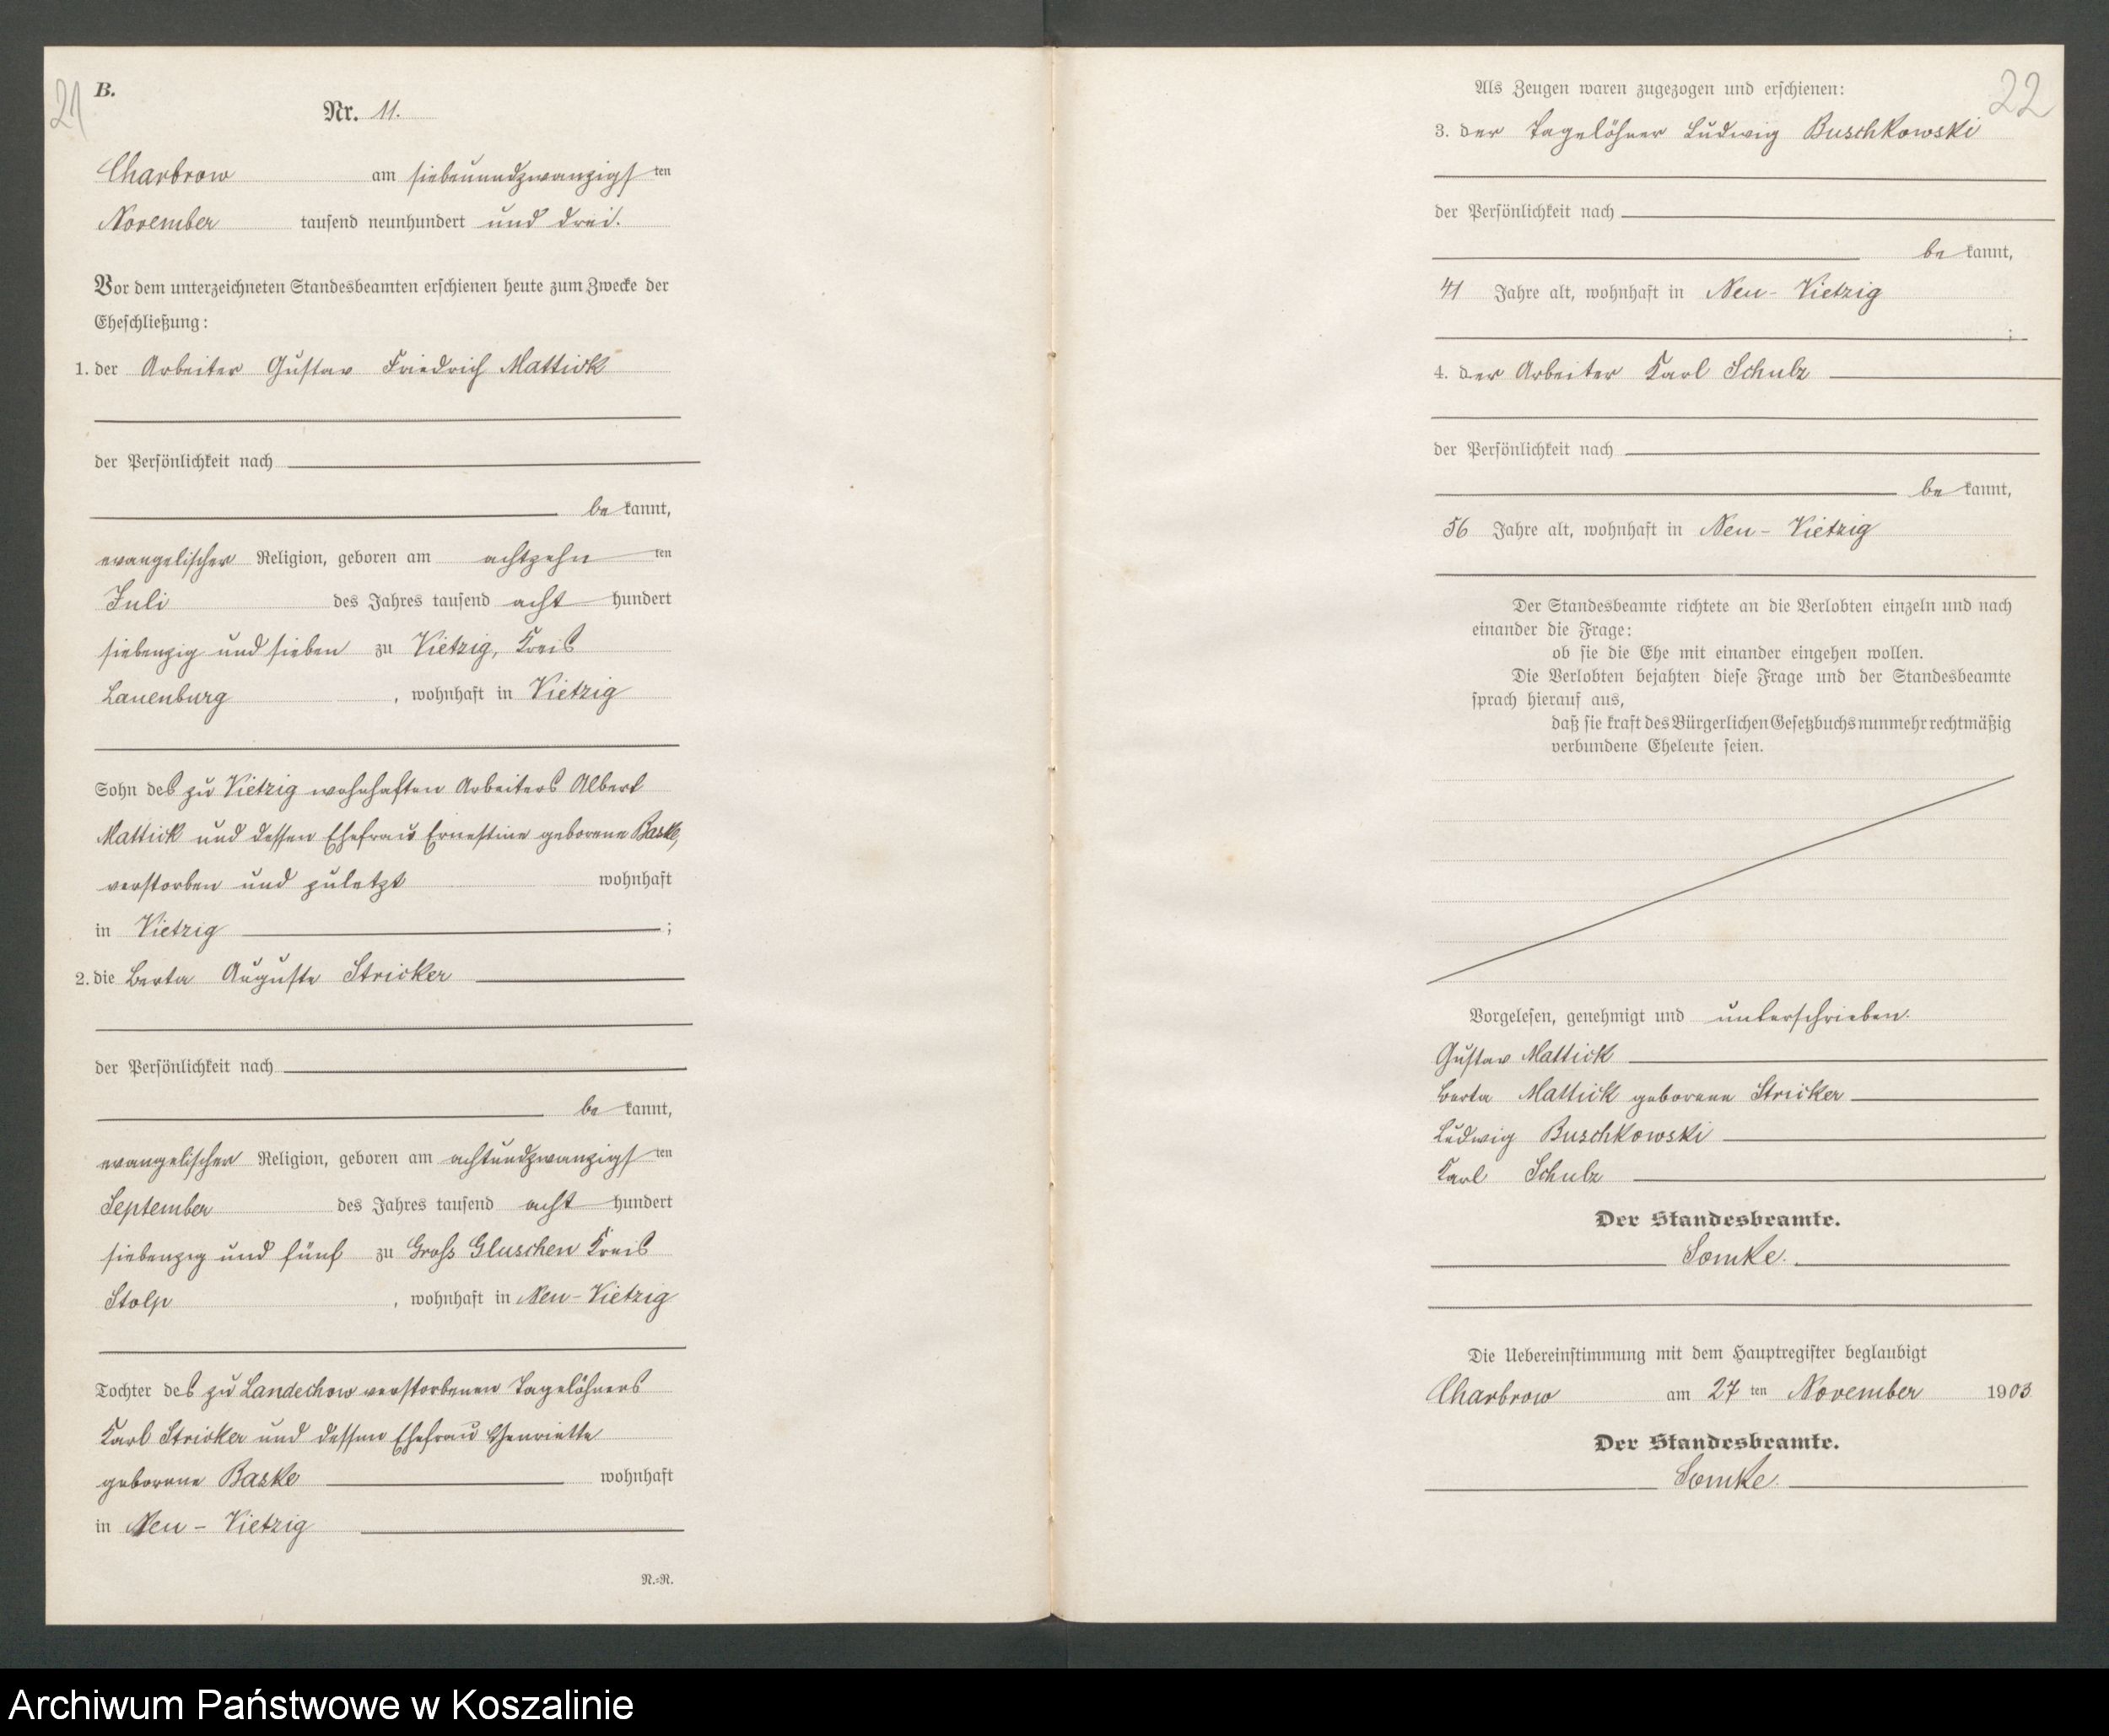 21
B.
Nr. 11.
Charbrow am siebenundzwanzigsten
November tausend neunhundert und drei.
Vor dem unterzeichneten Standesbeamten erschienen heute zum Zwecke der
Eheschließung:
1. der Arbeiter Gustav Friedrich Mattick
der Persönlichkeit nach
bekannt,
evangelischer Religion, geboren am achtzehnten
Juli des Jahres tausend achthundert
siebenzig und sieben zu Vietzig, Kreis
Lauenburg, wohnhaft in Vietzig
Sohn des zu Vietzig wohnhaften Arbeiters Albert
Mattick und dessen Ehefrau Ernestine geborene Baske,
verstorben und zuletzt wohnhaft
in Vietzig;
2. die Berta Auguste Stricker
der Persönlichkeit nach
bekannt,
evangelischer Religion, geboren am achtundzwanzigsten
September des Jahres tausend achthundert
siebenzig und fünf zu Gross Gluschen Kreis
Stolp, wohnhaft in Neu-Vietzig
Tochter des zu Landechow verstorbenen Tagelöhners
Karl Stricker und dessen Ehefrau Henriette
geborene Baske wohnhaft
in Neu-Vietzig
N.=R.
22
Als Zeugen waren zugezogen und erschienen:
3. der Tagelöhner Ludwig Buschkowski
der Persönlichkeit nach
bekannt,
41 Jahre alt, wohnhaft in Neu-Vietzig
;
4. der Arbeiter Karl Schulz
der Persönlichkeit nach
bekannt,
56 Jahre alt, wohnhaft in Neu-Vietzig
Der Standesbeamte richtete an die Verlobten einzeln und nach
einander die Frage:
ob sie die Ehe mit einander eingehen wollen.
Die Verlobten bejahten diese Frage und der Standesbeamte
sprach hierauf aus,
daß sie kraft des Bürgerlichen Gesetzbuchs nunmehr rechtmäßig
verbundene Eheleute seien.
Vorgelesen, genehmigt und unterschrieben.
Gustav Mattick
Berta Mattick geborene Stricker
Ludwig Buschkowski
Karl Schulz
Der Standesbeamte.
Somke.
Die Uebereinstimmung mit dem Hauptregister beglaubigt
Charbrow am 27ten November 1903
Der Standesbeamte.
Somke.
Archiwum Państwowe w Koszalinie